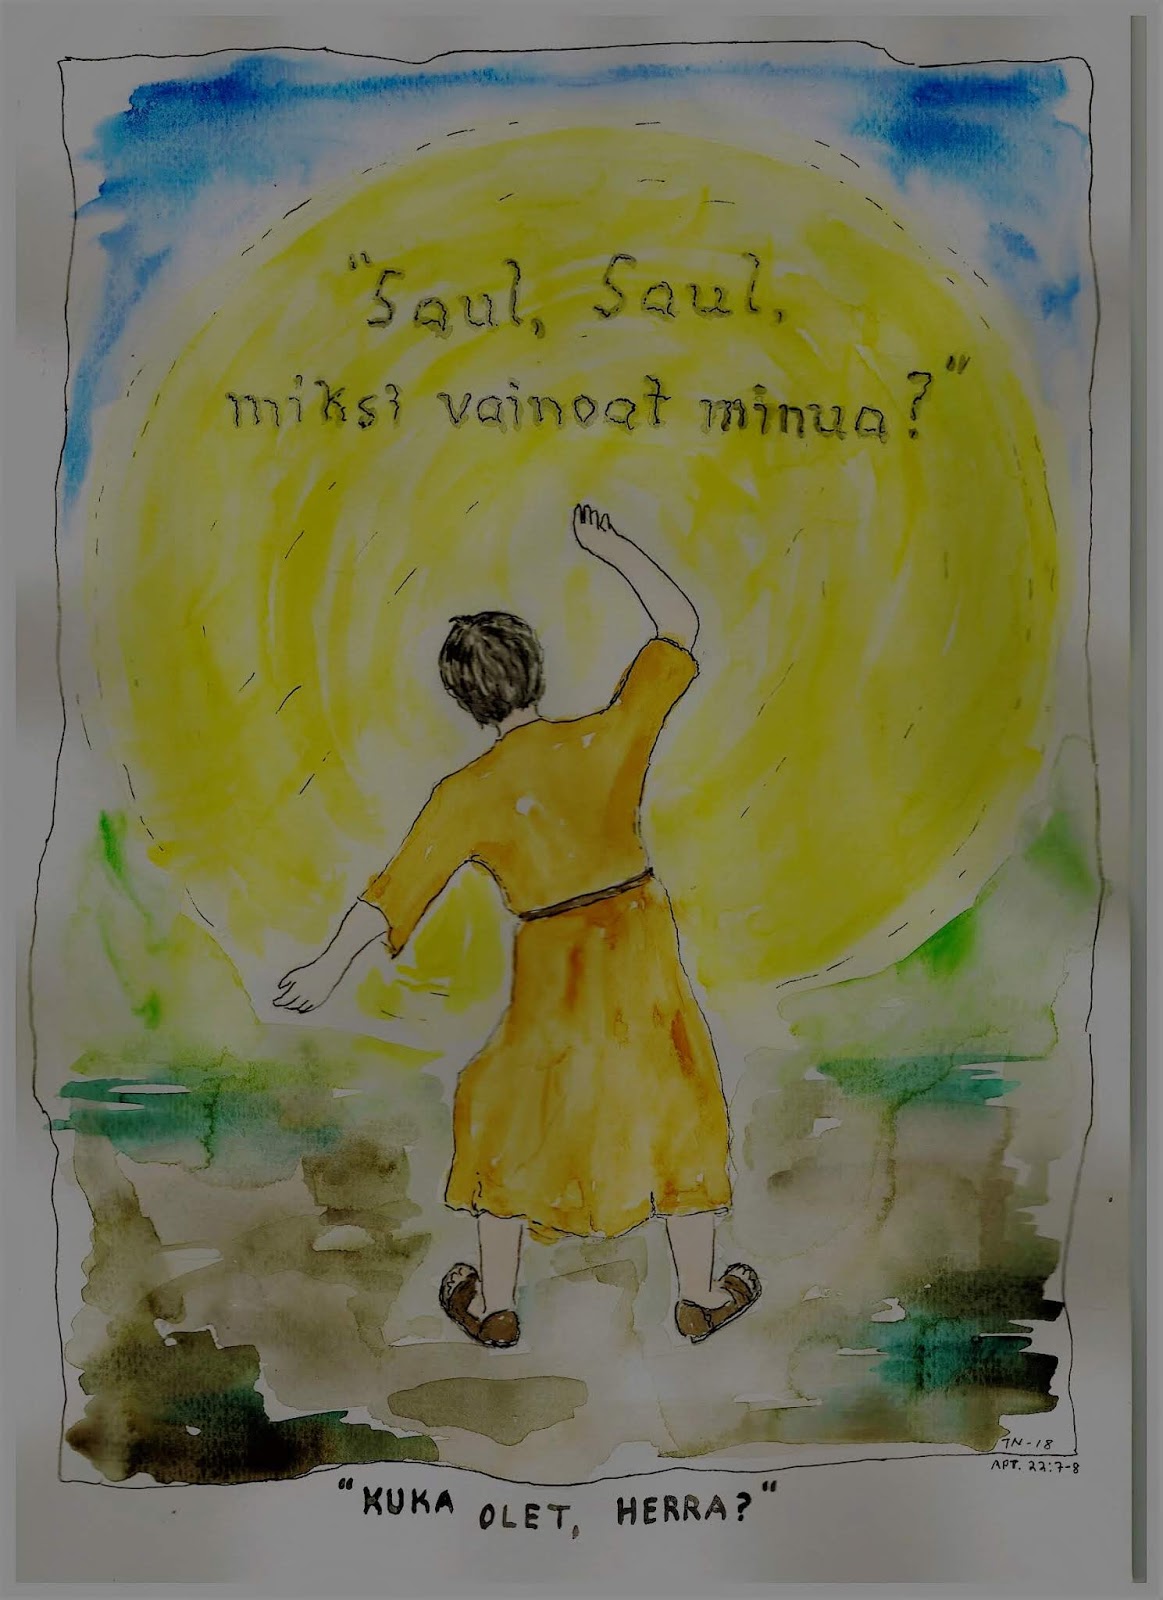 "Saul, Saul,
miksi vainoat minua?"
TN-18
APT. 22:7-8
"KUKA OLET, HERRA?"